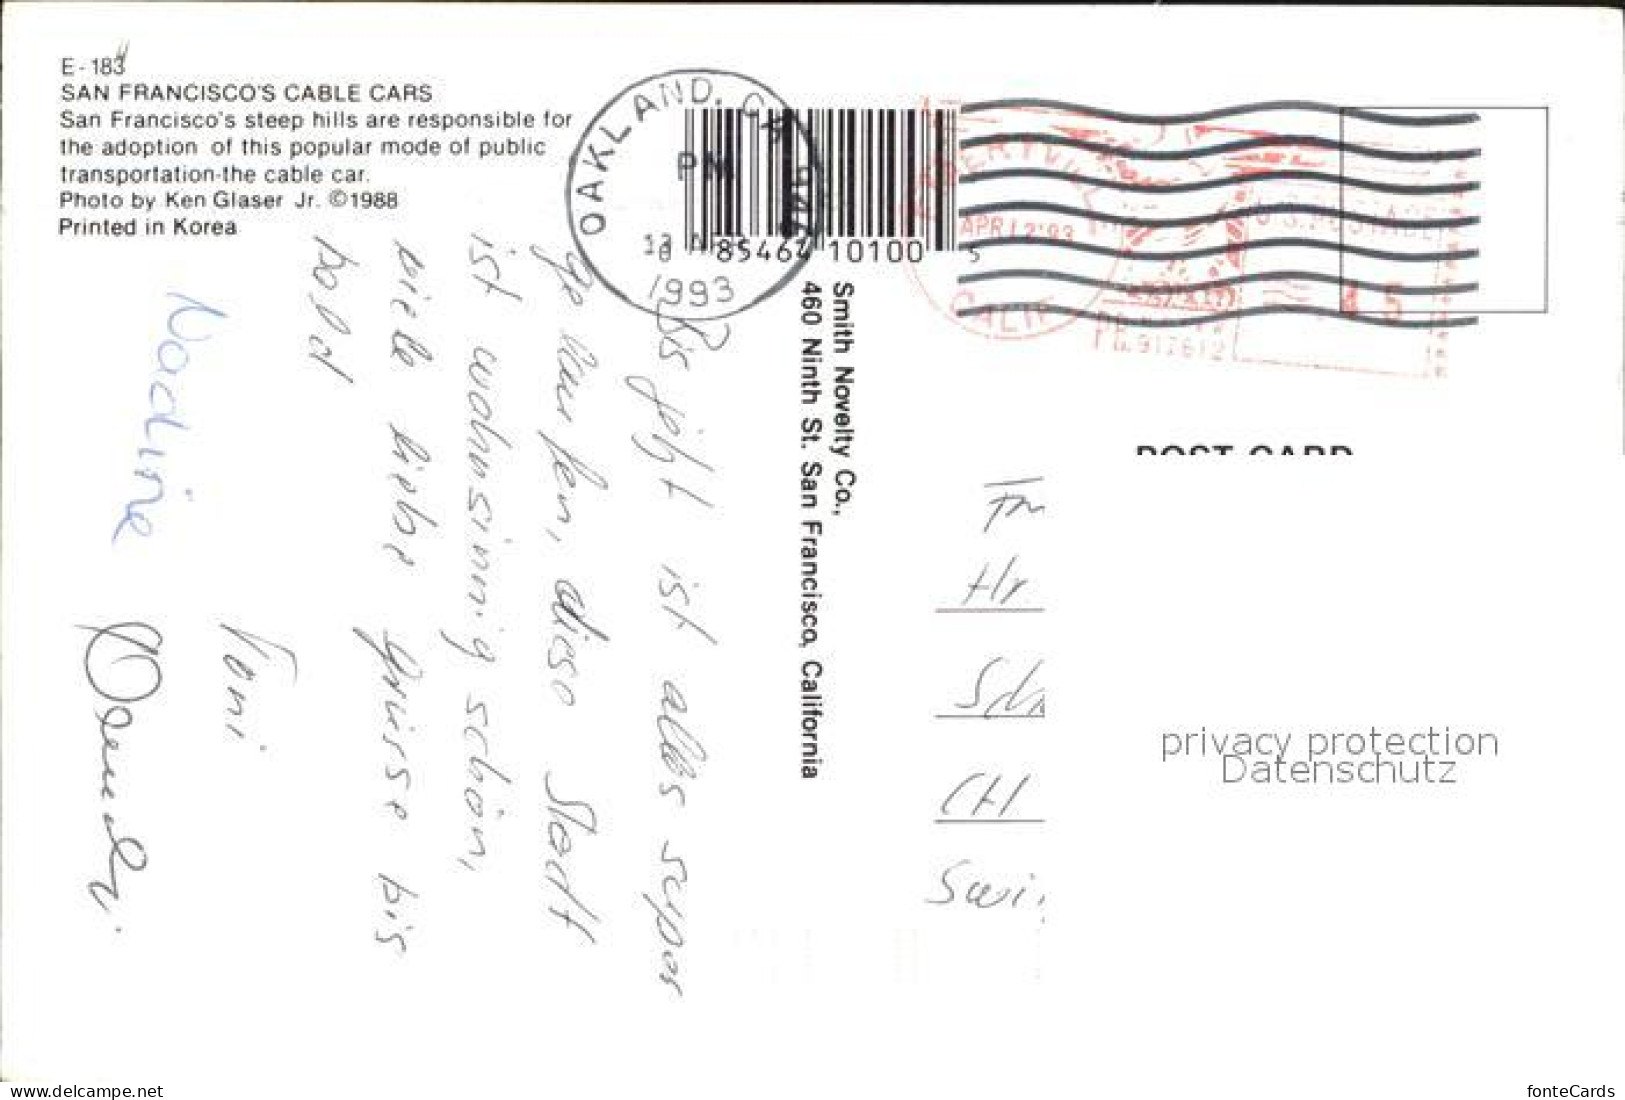 E-183
SAN FRANCISCO'S CABLE CARS
San Francisco's steep hills are responsible for
the adoption of this popular mode of public
transportation-the cable car.
Photo by Ken Glaser Jr. ©1988
Printed in Korea
OAKLAND, CA
PM
1993
85464 10100 5
APR 12'93
U.S. POSTAGE
CALIF
Smith Novelty Co.,
460 Ninth St. San Francisco, California
POST CARD
Bis jetzt ist alles super
gelaufen, diese Stadt
ist wahnsinnig schön,
viele liebe Grüsse bis
bald
Toni
Nadine
CH
privacy protection
Datenschutz
my-ansichtskarte
fonteCards